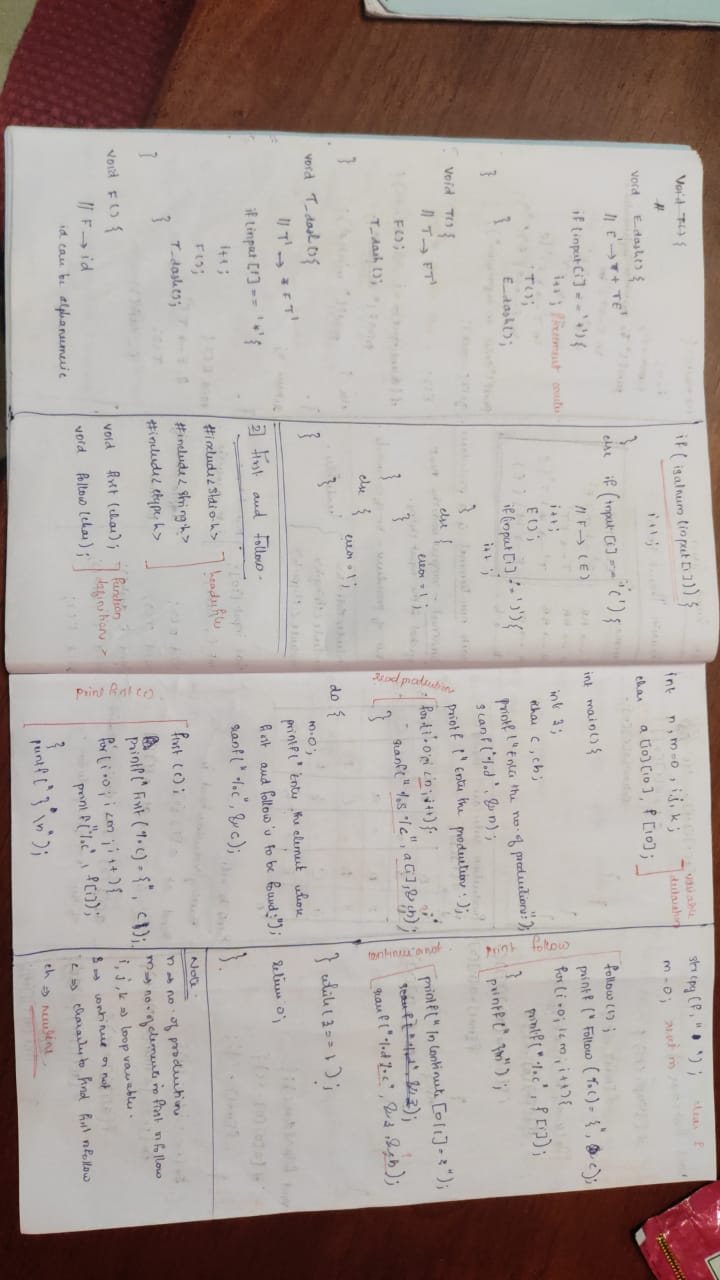 void T() {
void E_dash() {
// E' → + TE'
if (input[i] == '+') {
i++; increment
T();
E_dash();
}
}
void T() {
// T → FT'
F();
T_dash();
}
void T_dash() {
// T' → * F T'
if (input[i] == '*') {
i++;
F();
T_dash();
}
}
void F() {
// F → id
id can be alphanumeric
if (isalnum(input[i])) {
i++;
}
else if (input[i] == '(') {
// F → (E)
i++;
E();
if (input[i] == ')') {
i++;
}
else {
error = 1;
}
}
else {
error = 1;
}
}
2 First and Follow.
#include<stdio.h>
#include<string.h> header file
#include<ctype.h>
void first (char); function
void follow (char); definition
int n, m=0, i, j, k; variable
char a[10][10], f[10]; declaration
int main() {
int z;
char c, ch;
printf("Enter the no. of productions:");
scanf("%d", &n);
printf("Enter the productions:");
for(i=0; i<n; i++){
scanf("%s%c", a[i], &ch);
}
do {
m=0;
printf("Enter the element whose
first and follow is to be found:");
scanf("%c", &c);
first(c);
printf("First(%c) = {", c);
for(i=0; i<m; i++){
printf("%c", f[i]);
}
printf("}\n");
strcpy(f, " "); clear f
m=0;
follow(c);
printf("Follow(%c) = {", c);
for(i=0; i<m; i++){
printf("%c", f[i]);
}
printf("}\n");
printf("\n Continue [0/1] = ?");
scanf("%d", &z);
scanf("%d%c", &z, &ch);
} while(z==1);
return 0;
}
Note:
n ⇒ no. of production
m ⇒ no. of elements in first n follow
i, j, k ⇒ loop variable.
z ⇒ continue or not
c ⇒ character to find first n follow
ch ⇒ newline